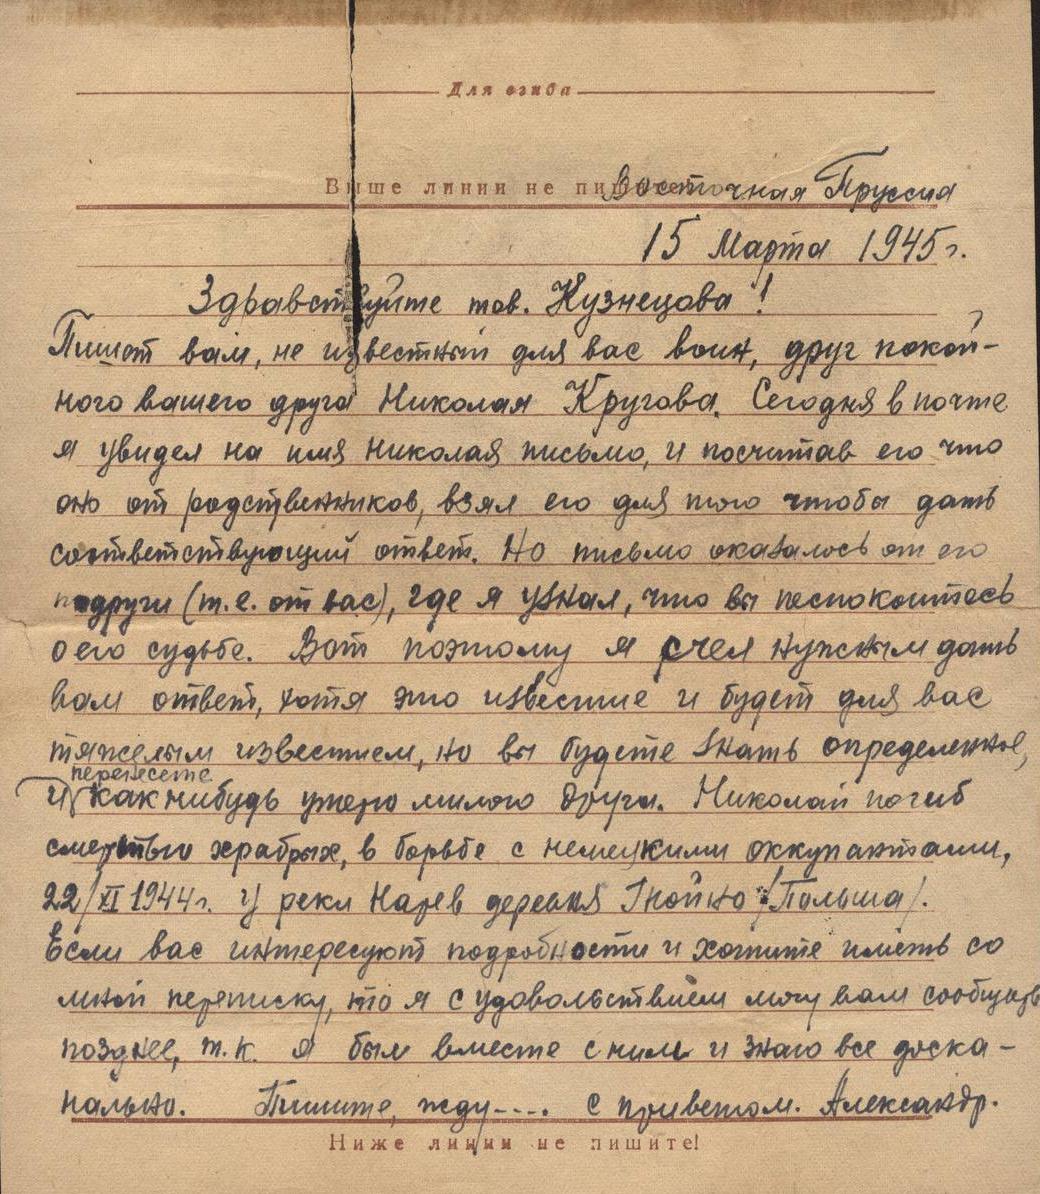 Для сгиба
Выше линии не пишите
Восточная Пруссия
15 Марта 1945г.
Здравствуйте тов. Кузнецова!
Пишет вам, не известный для вас воин, друг покой-
ного вашего друга Николая Кругова. Сегодня в почте
я увидел на имя Николая письмо, и посчитав его что
оно от родственников, взял его для того чтобы дать
соответствующий ответ. Но письмо оказалось от его
подруги (т.е. от вас), где я узнал, что вы песпокоитесь
о его судьбе. Вот поэтому я счел нужным дать
вам ответ, хотя это известие и будет для вас
тяжелым известием, но вы будете знать определенное,
перенесете
и как нибудь утерю милого друга. Николай погиб
смертью храбрых, в борьбе с немецкими оккупантами,
22/XI 1944г. У реки Нарев деревня Гнойно /Польша/.
Если вас интересуют подробности и хотите иметь со
мной переписку, то я с удовольствием могу вам сообщить
позднее, т.к. я был вместе с ним и знаю все доска-
нально. Пишите, жду.... С приветом. Александр.
Ниже линии не пишите!